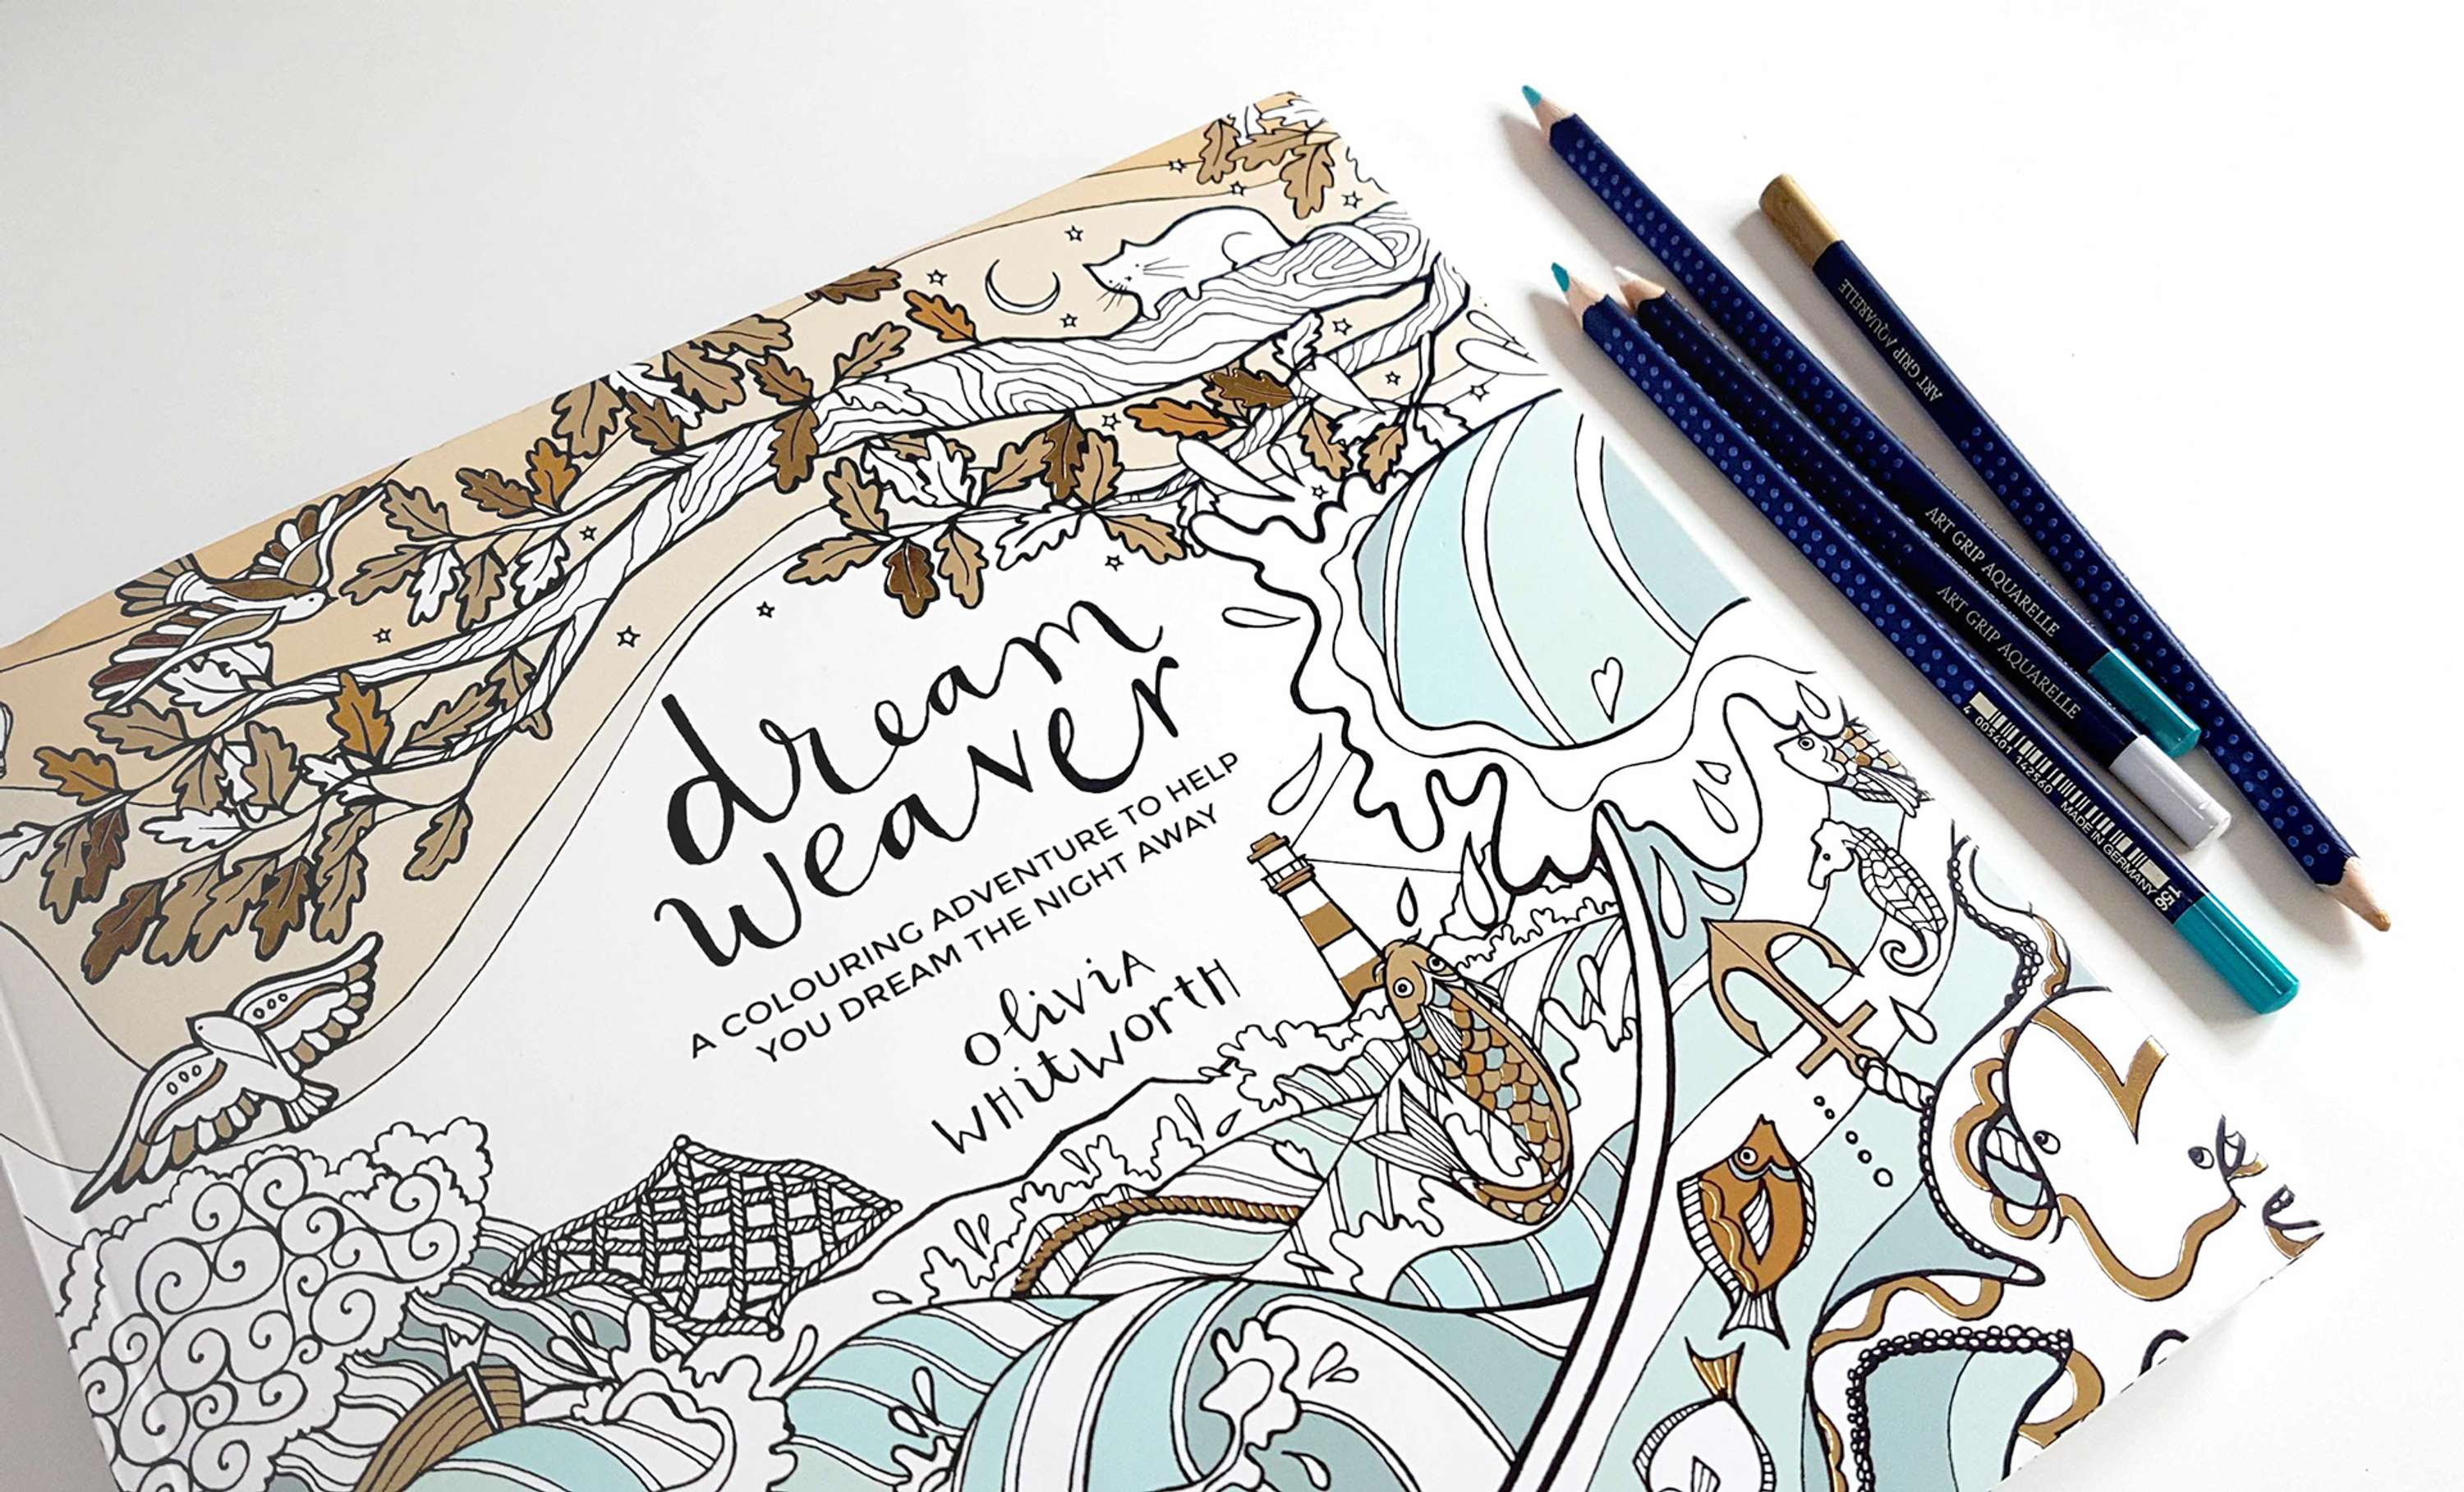 dream
weaver
A COLOURING ADVENTURE TO HELP
YOU DREAM THE NIGHT AWAY
OLIVIA
WHITWORTH
ART GRIP AQUARELLE
ART GRIP AQUARELLE
ART GRIP AQUARELLE
4 005401 142560 MADE IN GERMANY 156